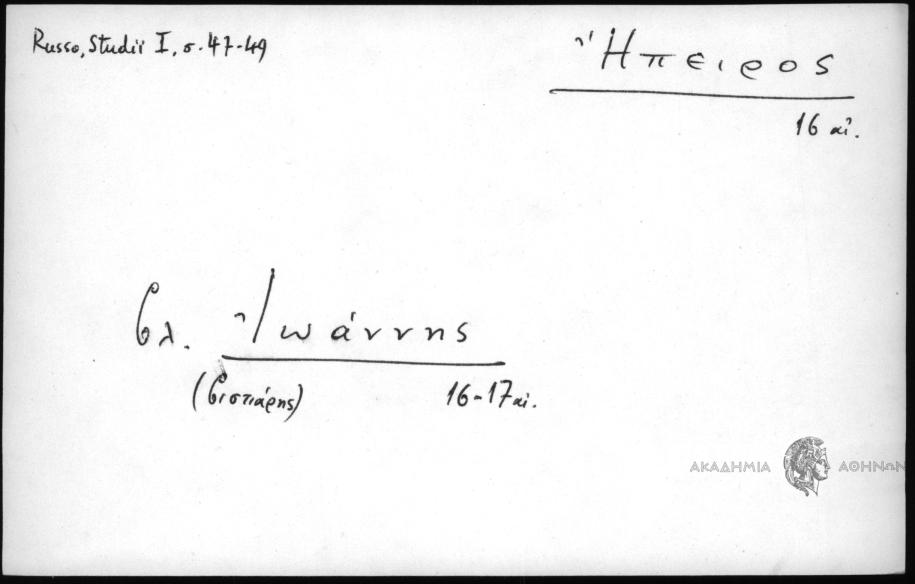 Russo, Studii I, σ. 47-49
Ἤπειρος
16 αἰ.
βλ. Ἰωάννης
(βιστιάρης) 16-17 αἰ.
ΑΚΑΔΗΜΙΑ ΑΘΗΝΩΝ